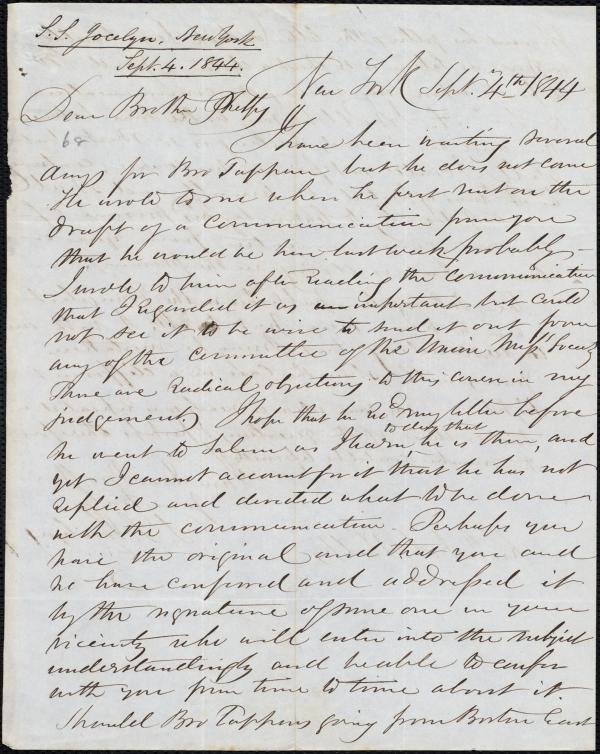 S. S. Jocelyn, New York
Sept. 4. 1844.
New York Sept. 4th 1844
Dear Brother Phelps
68
I have been waiting several
days for Bro Tappan but he does not come
He wrote to me when he first sent on the
draft of a communication from you
that he would be here last week probably —
I wrote to him after reading the communication
that I regarded it as important but could
not see it to be wise to send it out from
any of the committee of the Union Miss Society
There are radical objections to this course in my
judgement. I hope that he recd my letter before
he went to Salem as I learn to day that he is there, and
yet I cannot account for it that he has not
replied and decided what to be done
with the communication. Perhaps you
have the original and that you and
he have conferred and addressed it
by the signature of some one in your
vicinity who will enter into the subject
understandingly and be able to confer
with you from time to time about it.
Should Bro Tappan going from Boston East